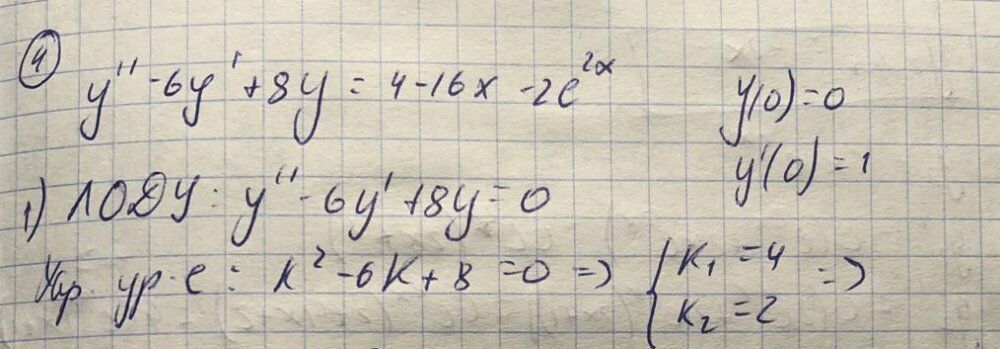 4
y'' - 6y' + 8y = 4 - 16x - 2e^{2x} y(0) = 0
y'(0) = 1
1) ЛОДУ: y'' - 6y' + 8y = 0
Хар. ур-е: k² - 6k + 8 = 0 => { k₁ = 4 =>
k₂ = 2